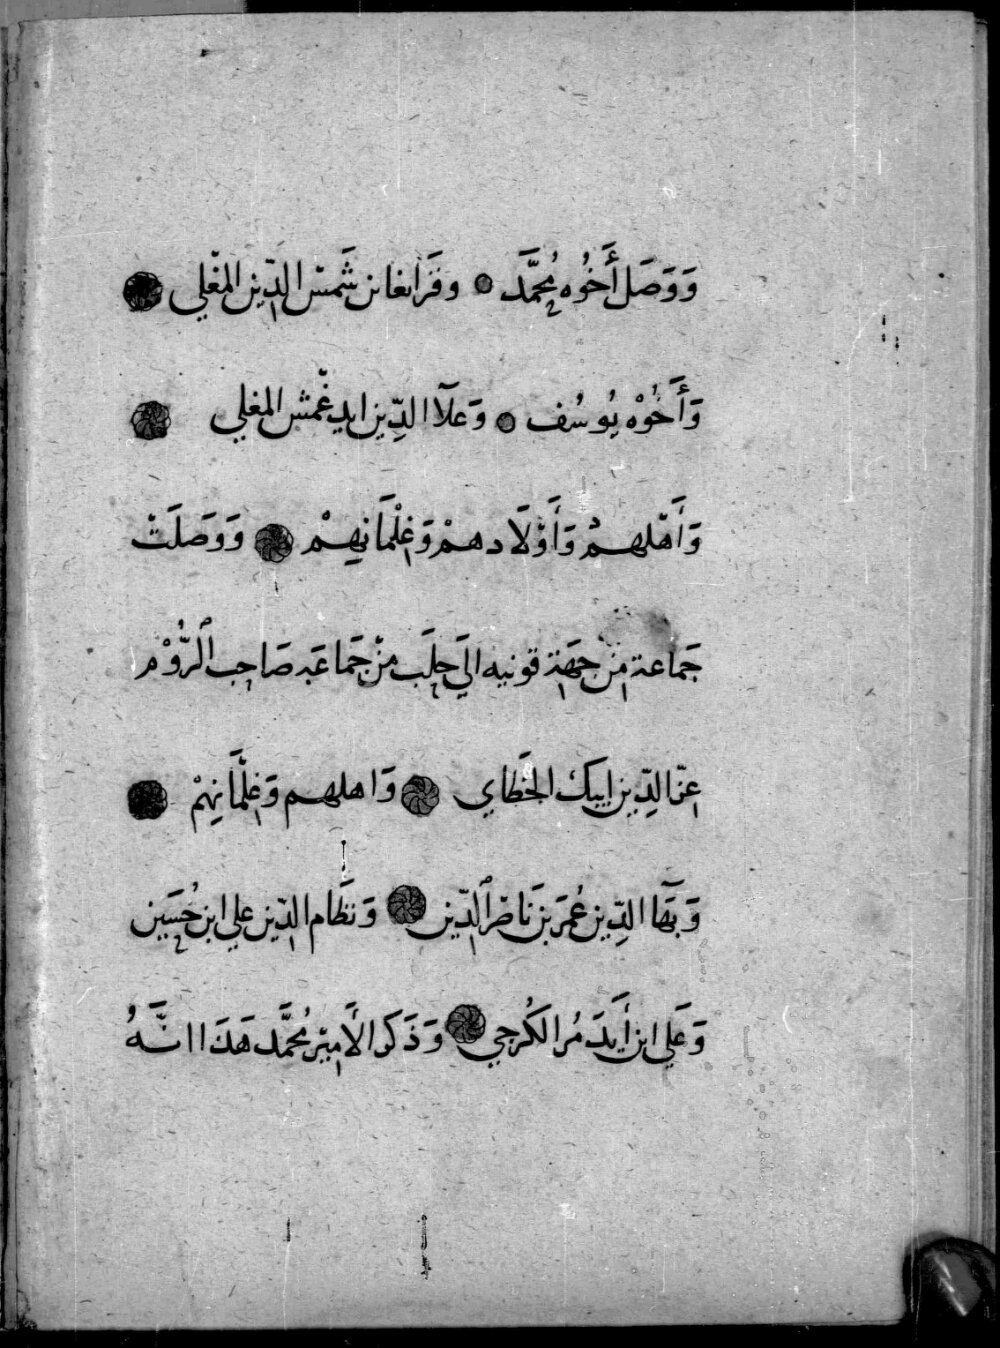 وَوَصَلَ أَخُوه مُحمَّدَ وقَرَابغا بن شَمسْ الدِّين المغْلي
وَأَخُوْه يُوسُف وَعلآ الدِّين ايدغْمش المغلي
وَأَهْلهمْ وَأَوْلَادهمْ وَغِلْمَانِهِمْ وَوَصَلَتْ
جَماعة مِنْ جِهَة قونيه الي حلَب منْ جَمَاعَة صَاحِب الرُّوْم
عزّ الدِّين ايبك الخَطاي وَاهلهم وَغِلْمَانِهِمْ
وَبَهَآ الدِّين عُمَر بن نَاصْر الدِّين وَنظَام الدِّين علي ابن حُسَين
وَعَلي ابن أَيدَمُر الكُرجي وَذَكَر الأَمِيْر مُحمَّد هَذَا انَّهُ